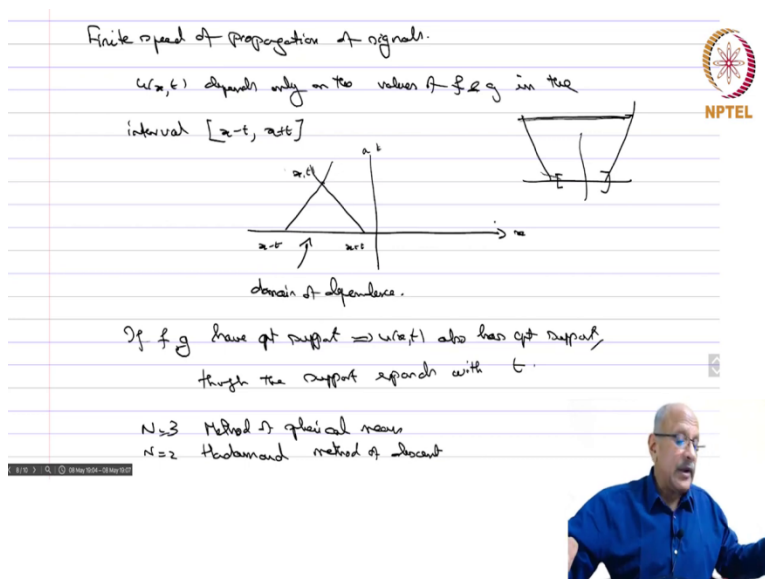 Finite speed of propagation of signals.
u(x,t) depends only on the values of f & g in the
interval [x-t, x+t]
NPTEL
t
x,t
x-t
x+t
x
domain of dependence.
If f, g have cpt support ⇒ u(x,t) also has cpt support,
though the support expands with t.
N=3 Method of spherical means
N=2 Hadamard method of descent
8/10 08 May 19:04 - 08 May 19:07